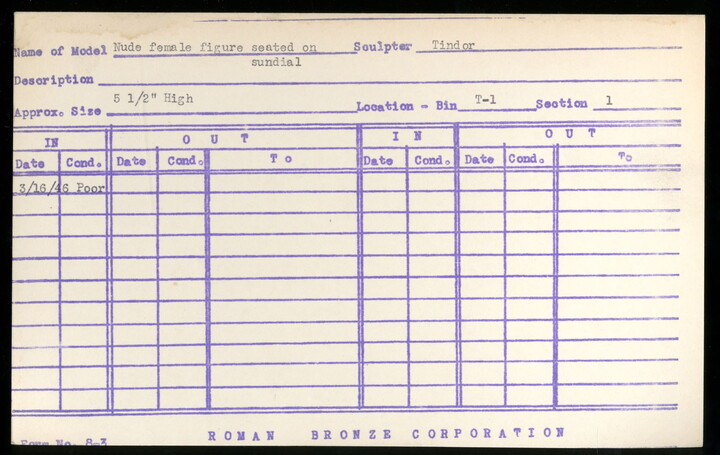 Name of Model Nude female figure seated on Sculptor Tindor
sundial
Description
Approx. Size 5 1/2" High Location - Bin T-1 Section 1
IN OUT IN OUT
Date Cond. Date Cond. To Date Cond. Date Cond. To
3/16/46 Poor
Form No. S-3 ROMAN BRONZE CORPORATION